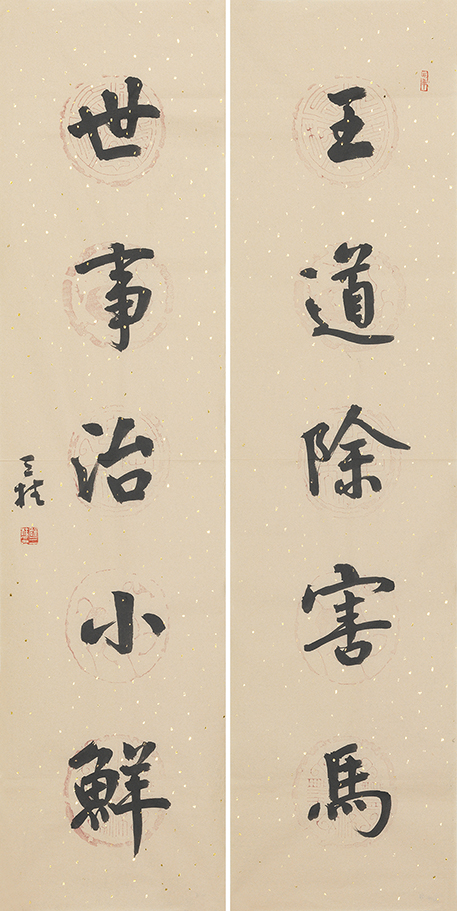 王道除害馬
世事治小鮮